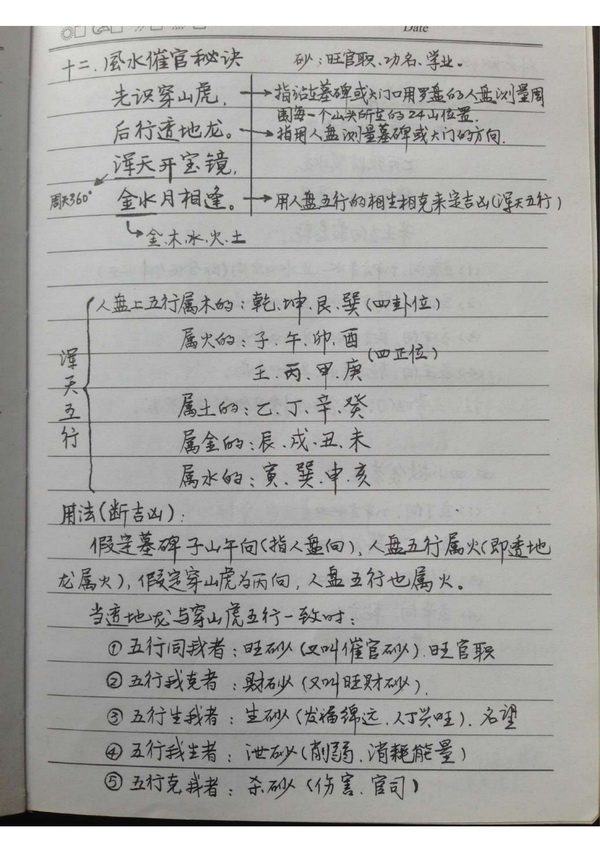 Date
十二.風水催官秘诀 砂:旺官职、功名、学业。
先识穿山虎, → 指站在墓碑或大门口用罗盘的人盘测量周
围每一个山头所坐的24山位置.
后行透地龙。→ 指用人盘测量墓碑或大门的方向.
浑天开宝镜,
周天360°
金水月相逢。→ 用人盘五行的相生相克来定吉凶(浑天五行)
金.木.水.火.土
浑天五行
人盘上五行属木的:乾、坤、艮、巽(四卦位)
属火的:子、午、卯、酉
(四正位)
壬、丙、甲、庚
属土的:乙、丁、辛、癸
属金的:辰、戌、丑、未
属水的:寅、巽、申、亥
用法(断吉凶):
假定墓碑子山午向(指人盘向),人盘五行属火(即透地
龙属火),假定穿山虎为丙向,人盘五行也属火。
当透地龙与穿山虎五行一致时:
① 五行同我者:旺砂(又叫催官砂).旺官职
② 五行我克者:财砂(又叫旺财砂).
③ 五行生我者:生砂(发福绵远、人丁兴旺).名望
④ 五行我生者:泄砂(削弱、消耗能量)
⑤ 五行克我者:杀砂(伤害、官司)